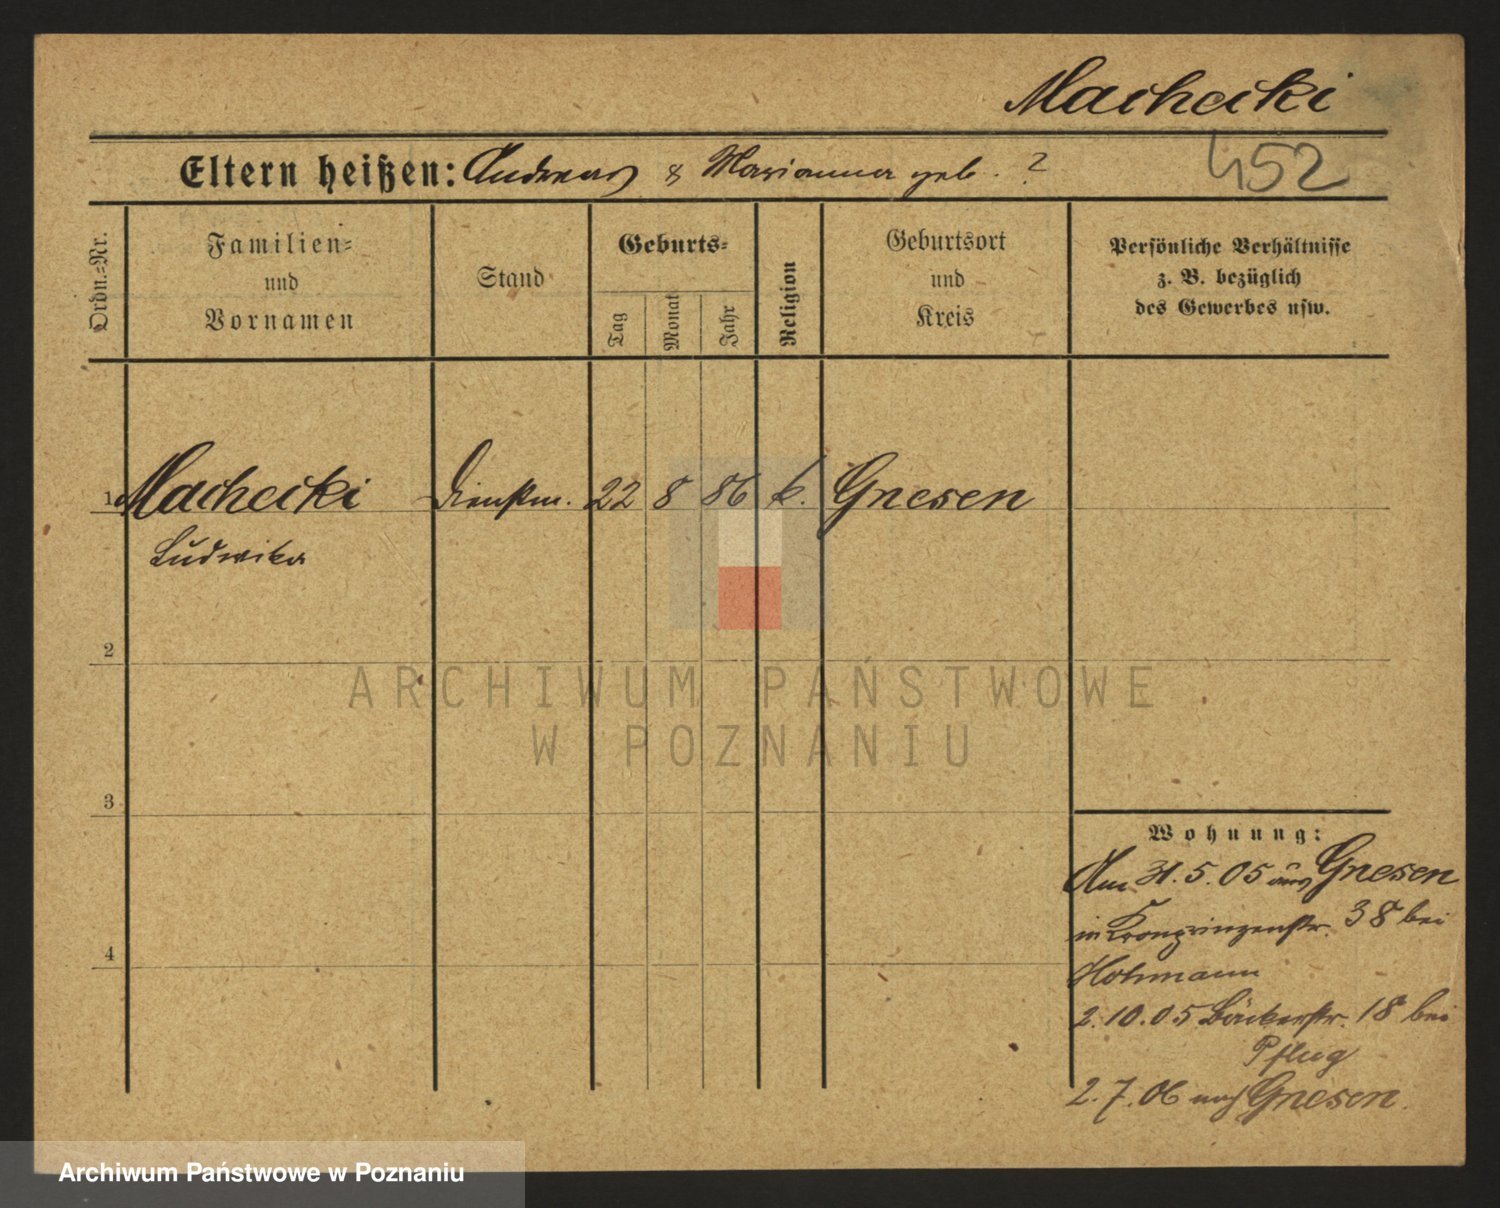 Machecki
Eltern heißen: Andreas & Marianna geb. ?
452
Ordn.-Nr.
Familien-
und
Vornamen
Stand
Geburts-
Tag
Monat
Jahr
Religion
Geburtsort
und
Kreis
Persönliche Verhältnisse
z. B. bezüglich
des Gewerbes usw.
1 Machecki Dienstm. 22 8 86 k. Gnesen
Ludwika
2
ARCHIWUM PAŃSTWOWE
W POZNANIU
3
4
Wohnung:
Am 31.5.05 aus Gnesen
in Kronprinzenstr. 38 bei
Hohmann
2.10.05 Bäckerstr. 18 bei
Pflug
2.7.06 nach Gnesen.
Archiwum Państwowe w Poznaniu